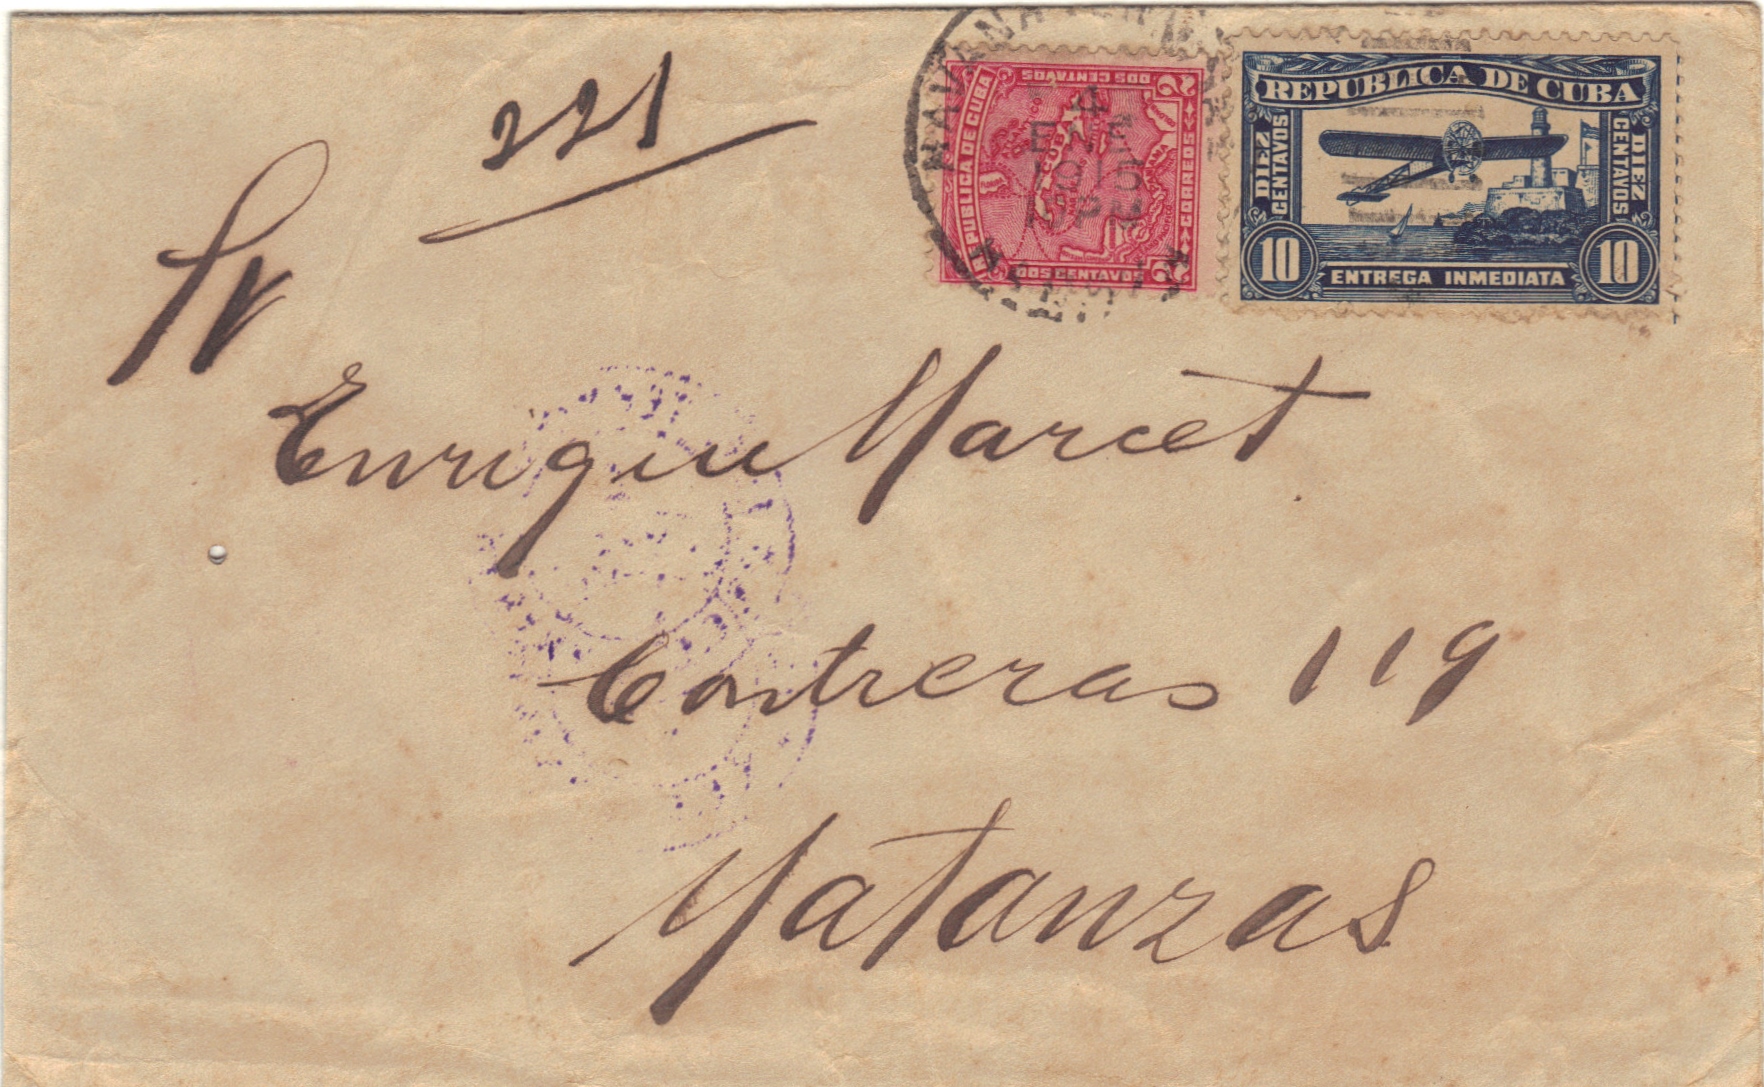 221
Sr
Enrique Marcet
Contreras 119
Matanzas
HAVANA
4
ENE
1915
12 PM
REPUBLICA DE CUBA
DOS CENTAVOS
CORREOS
2
2
DOS CENTAVOS
CUBA
REPUBLICA DE CUBA
DIEZ CENTAVOS
DIEZ CENTAVOS
10
ENTREGA INMEDIATA
10